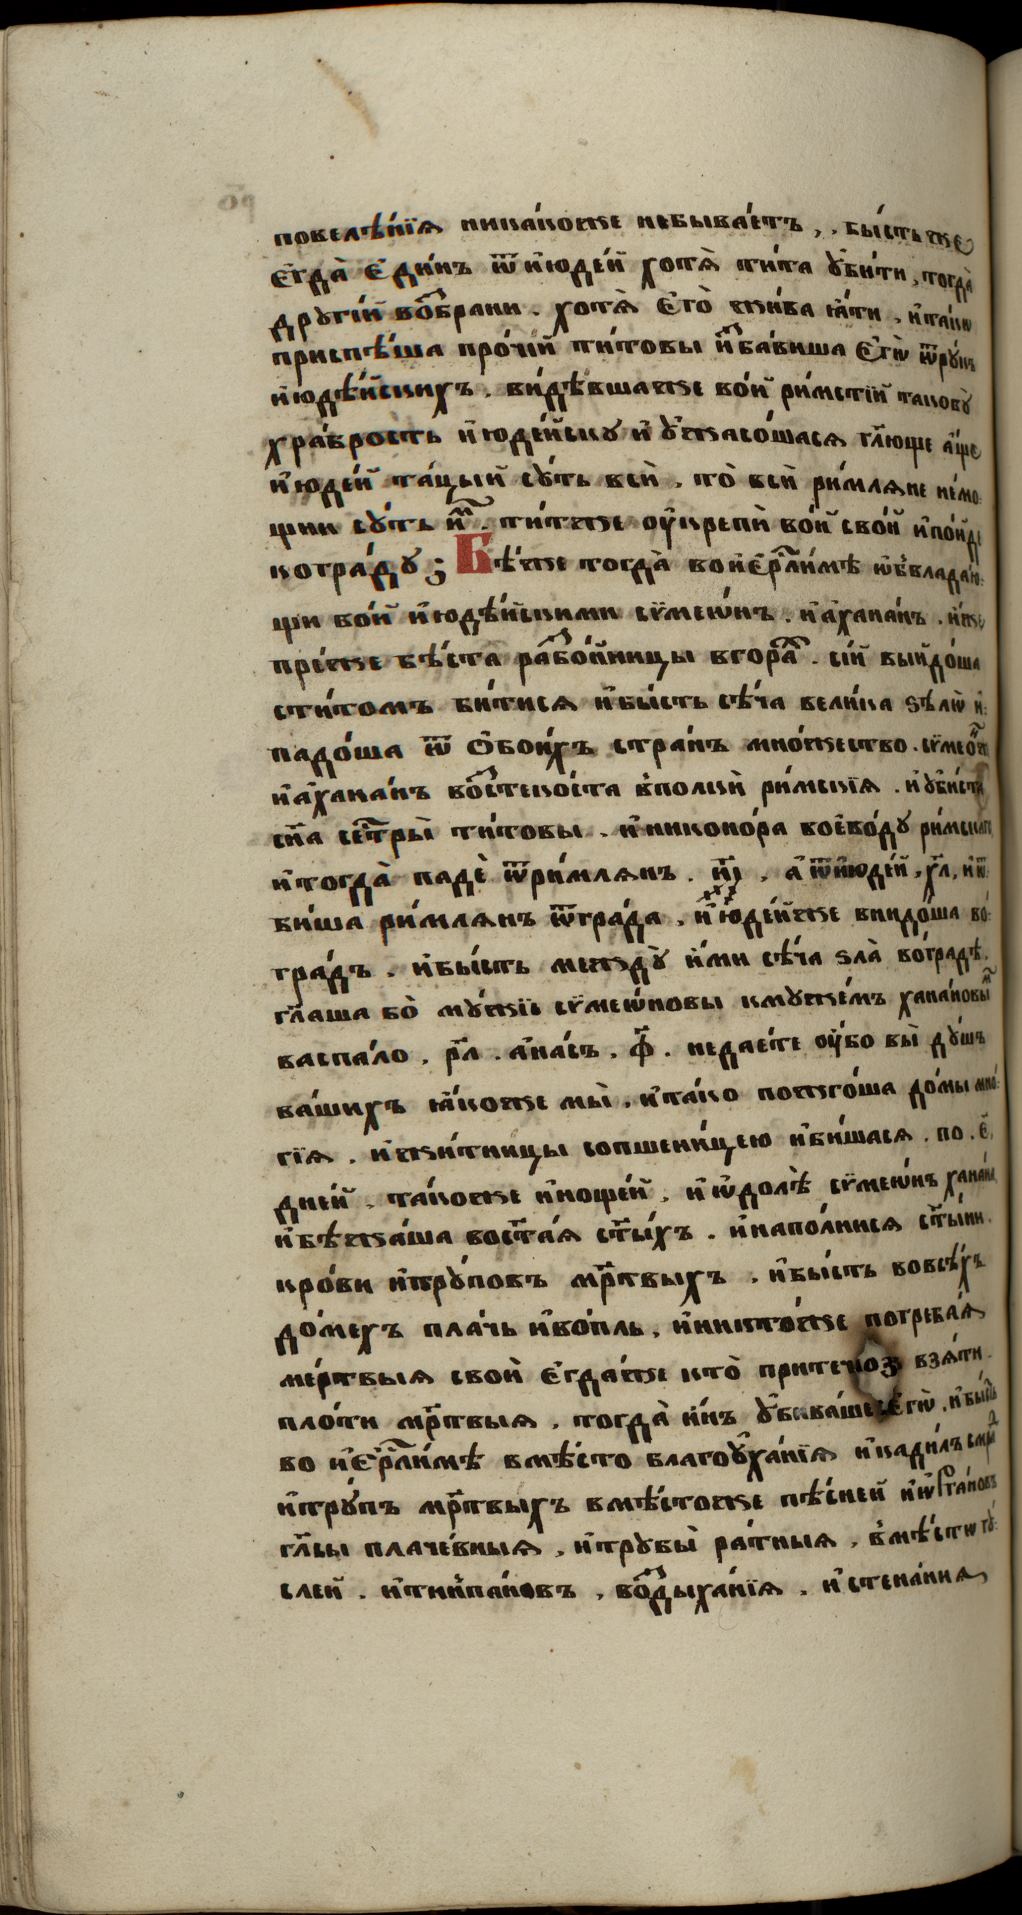 повелѣ́нїѧ никако́же небыва́етъ,. бы́сть же
є҆гда̀ є҆ди́нъ ѿ и҆юде́й хотѧ̀ ти́та ᲂу҆би́ти, тогда̀
дрꙋгі́й возбрани. хотѧ̀ є҆го̀ жи́ва ꙗ҆́ти. и҆та́кѡ
приспѣ́ша про́чїй ти́товы и҆зба́виша є҆гѡ̀ ѿрꙋ́къ
и҆юдѣ́йскихъ. ви́дѣвшаже во́й ри́мстїй таковꙋ̀
хра́брость и҆юде́йскꙋ и҆ ᲂу҆жасо́шасѧ гл҃юще а҆́ще
и҆юде́й та́цый сꙋ́ть всѝ. то̀ всѝ ри́млѧне не́мо:
щни сꙋ́ть и҆м. ти́тже ᲂу҆крепѝ во́й сво́й и҆по́йде
когра́дꙋ; Бѣ́же тогда̀ вои҆єрⷭ҇ли́мѣ ѡ҆блада́ю:
щи во́й и҆юдѣ́йскими сѷмеѡ́нъ. и҆а҆хана́нъ. и҆́же
пре́же бѣ́ста разбо́йницы вгора́х. сі́й вы́йдо́ша
сти́томъ би́тисѧ и҆бы́сть сѣ́ча вели́ка ѕѣ́лѡ и҆:
падо́ша ѿ ѻ҆бои́хъ стра́нъ мно́жество. сѷмео́н
и҆а҆хана́нъ востеко́ста в̾полкѝ ри́мскїѧ. и҆ᲂу҆би́ста
сн҃а сестры̀ ти́товы. и҆никоно́ра воево́дꙋ ри́мскаго
и҆тогда̀ падѐ ѿри́млѧнъ. и҃. а҆ѿи҆юде́й, х҃л, и҆ѿ
би́ша ри́млѧнъ ѿгра́да. и҆юде́йже внидо́ша во́:
гра́дъ. и҆бы́сть междꙋ̀ и҆́ми сѣ́ча ѕла̀ во́градѣ.
гл҃аша бо̀ мꙋ́жїе сѷмеѡ́новы кмꙋже́мъ хана́новым
васпа́ло. р҃л. а҆на́съ. ф҃. недае́те ᲂу҆́бо вы̀ дꙋ́шъ
ва́шихъ ꙗ҆́коже мы̀. и҆та́ко пожго́ша до́мы мно́:
гїѧ. и҆жи́тницы сопшени́цею и҆би́шасѧ. по. є҃.
дне́й. та́коже и҆ноще́й. и҆ѡ҆долѣ̀ сѷмеѡ́нъ хана́на
и҆бѣжа́ша восⷮа́ѧ сⷮы́хъ. и҆напо́лнисѧ сⷮы́ни.
кро́ви и҆трꙋ́повъ мр҃твыхъ. и҆бы́сть вовсѣ́хъ
до́мехъ пла́чь и҆во́пль. и҆никто́же погреба́ѧ
ме́ртвыѧ своѝ є҆гда́же кто̀ взѧ́ти.
пло́ти мр҃твыѧ. тогда̀ и҆́нъ ᲂу҆бива́ше є҆гѡ̀. и҆бы́сть
во и҆єрⷭ҇ли́мѣ вмѣ́сто благоᲂу҆ха́нїѧ и҆кади́лъ смра́д
и҆трꙋ́пъ мр҃твыхъ вмѣ́стоже пѣ́сней и҆ѡ҆рга́новъ
гл҃сы плаче́вныѧ. и҆трꙋбы̀ ра́тныѧ. в̾мѣ́стѡ гꙋ́:
слей. и҆тимпа́новъ, воздыха́нїѧ. и҆стена́ниѧ